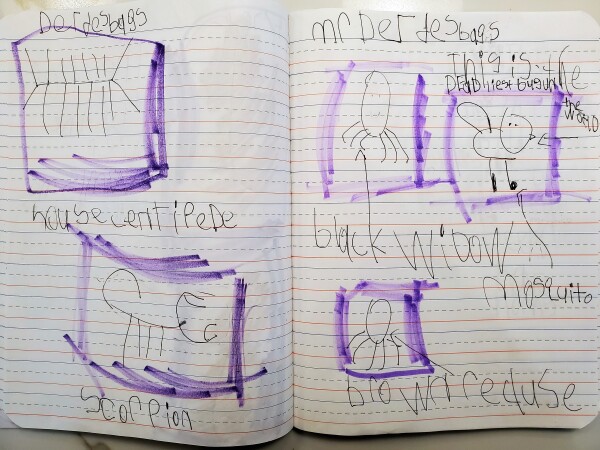 DerJesbags
house centipede
scorpion
mr DerJesbags
This is the
DEADliest bug in
the
World
black Widow
mosquito
brown recluse